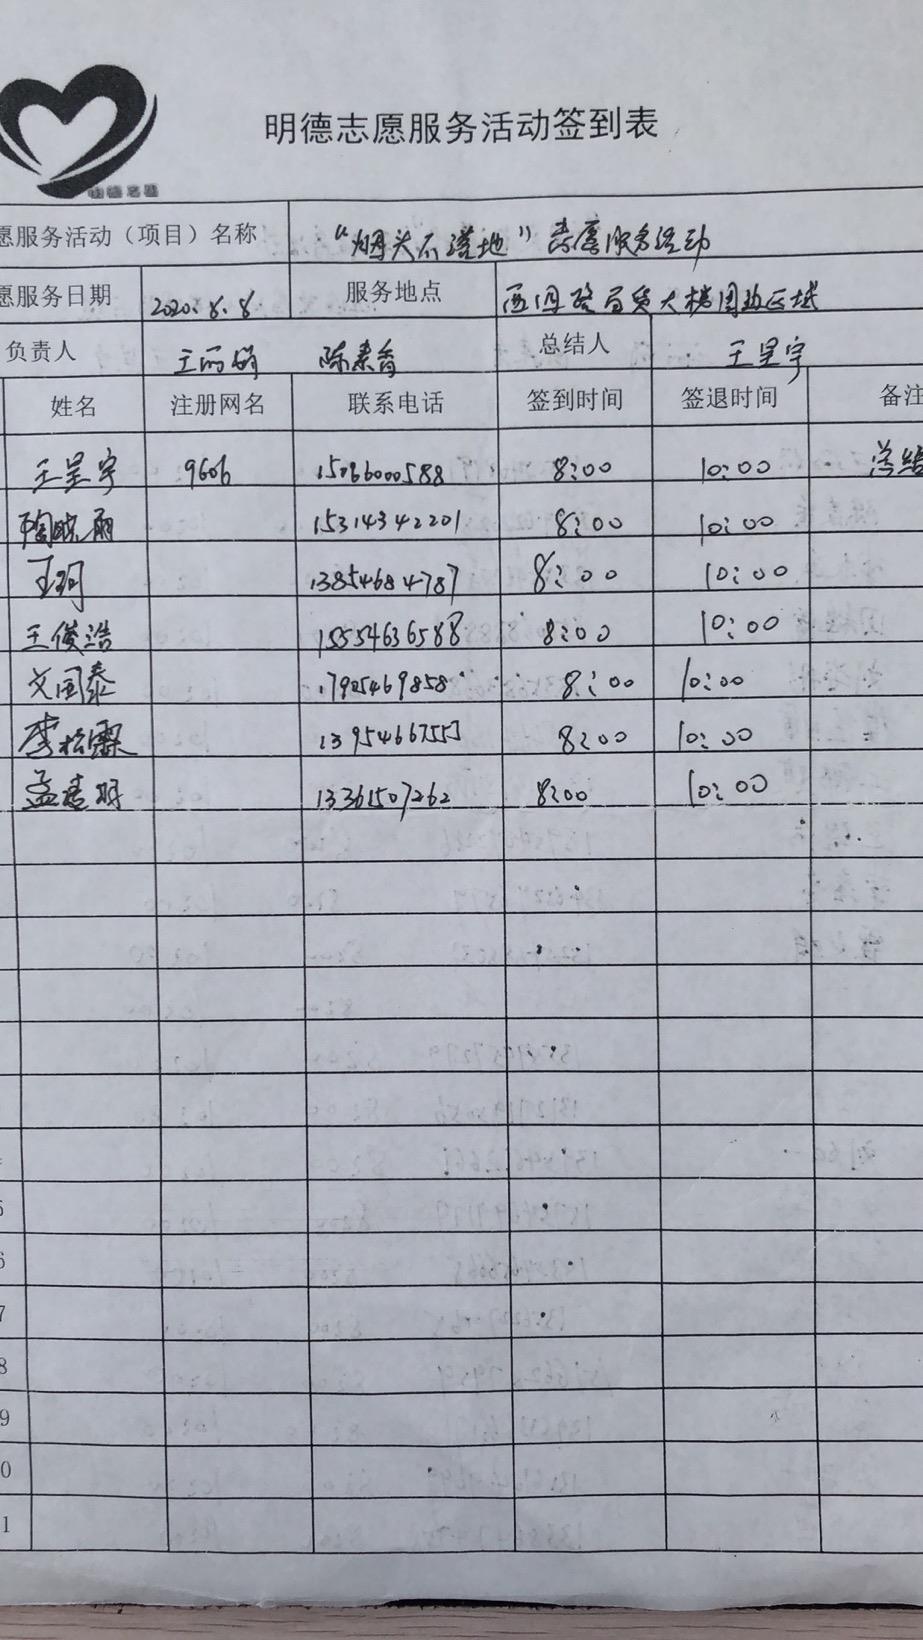 明德志愿服务活动签到表
愿服务活动（项目）名称 "烟头不落地" 志愿服务活动
愿服务日期 2020.8.8. 服务地点 西四路百货大楼周边区域
负责人 王丽娟 陈素香 总结人 王呈宇
姓名 注册网名 联系电话 签到时间 签退时间 备注
王呈宇 9606 15066000588 8:00 10:00 总结
陶晓雨 15314342201 8:00 10:00
王珂 13854684787 8:00 10:00
王俊浩 15554636588 8:00 10:00
文国泰 8:00 10:00
李松霖 8:00 10:00
孟 13361507262 8:00 10:00
5
6
7
8
9
0
1